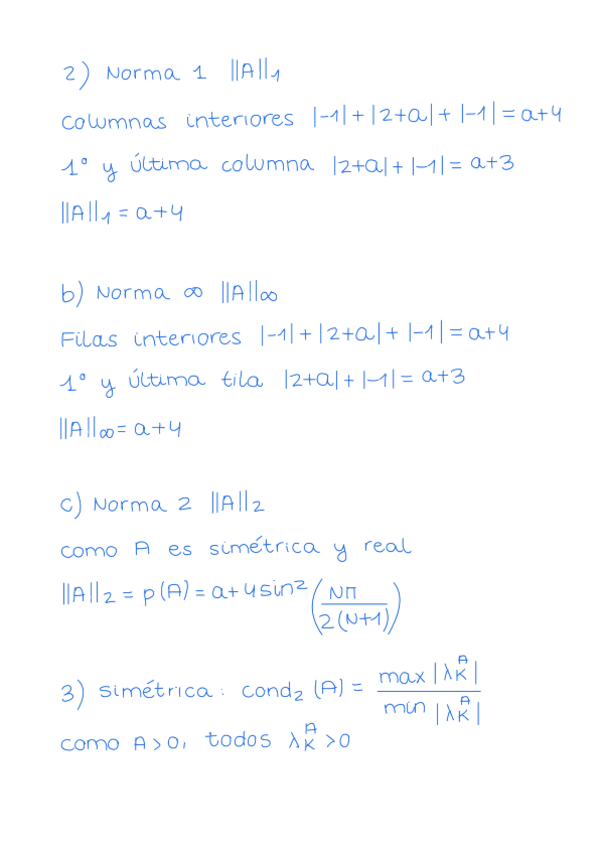 2) Norma 1 ||A||₁
columnas interiores |-1| + |2+a| + |-1| = a+4
1ª y última columna |2+a| + |-1| = a+3
||A||₁ = a+4
b) Norma ∞ ||A||∞
Filas interiores |-1| + |2+a| + |-1| = a+4
1ª y última fila |2+a| + |-1| = a+3
||A||∞ = a+4
c) Norma 2 ||A||₂
como A es simétrica y real
||A||₂ = ρ(A) = a+4sin²(Nπ / 2(N+1))
3) simétrica: cond₂ (A) = max |λ_K^A| / min |λ_K^A|
como A>0, todos λ_K^A >0